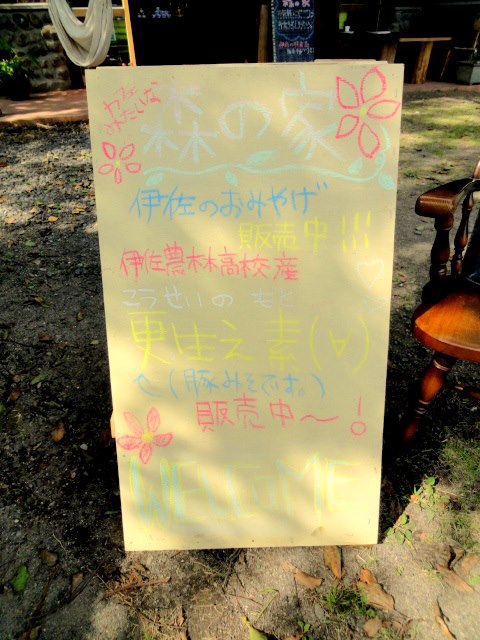 カフェ
わたしな
森の家
伊佐のおみやげ
販売中!!!
伊佐農林高校産
こうせいの もと
更生之素(∀)
(豚みそでは。)
販売中〜!
WELCOME